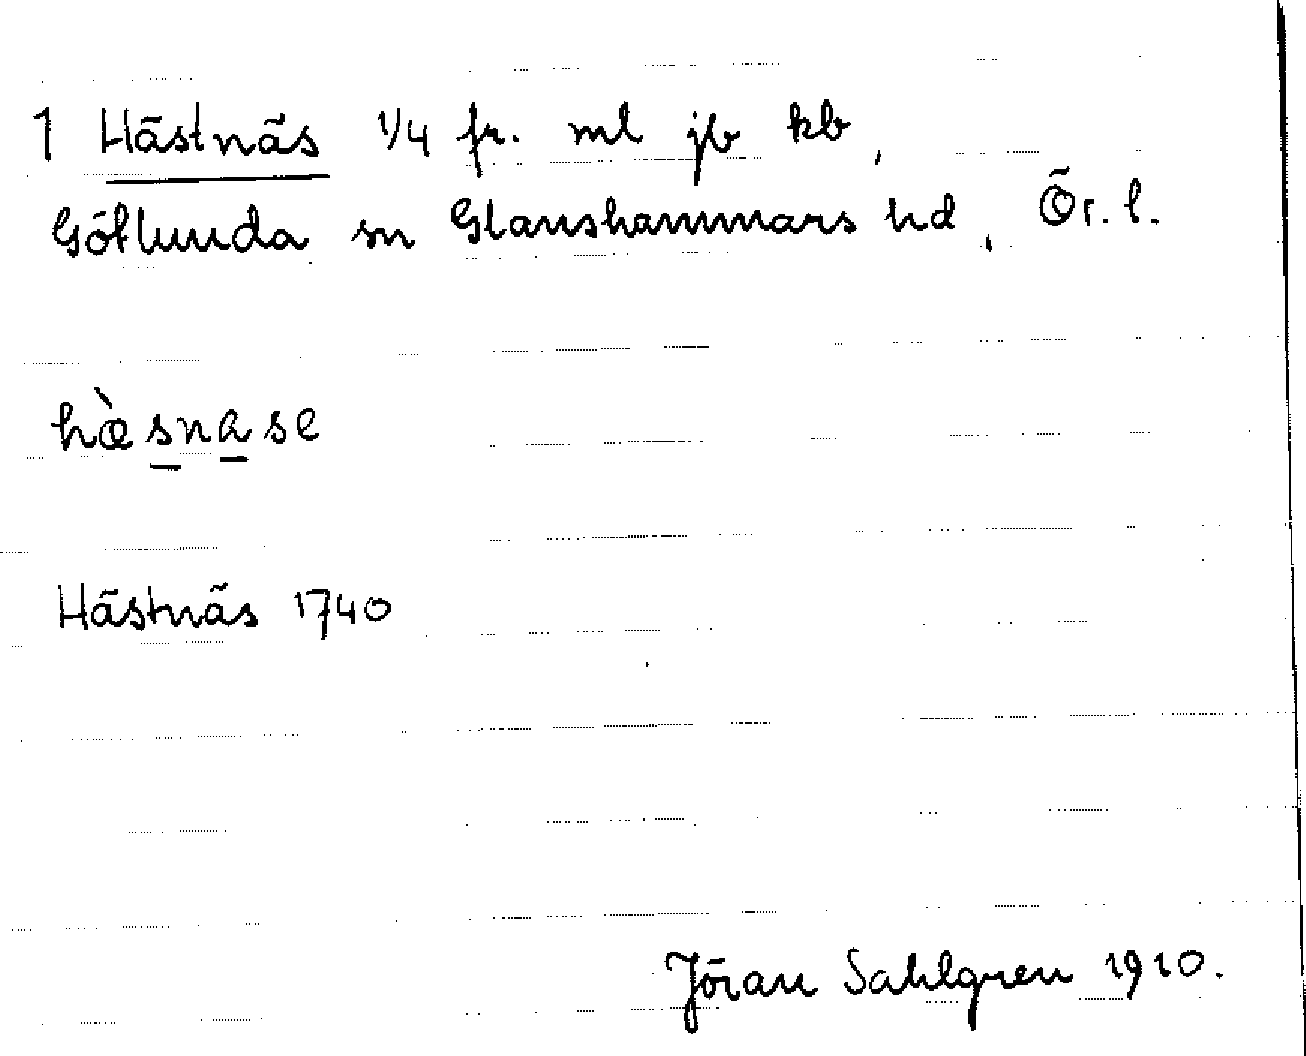 1 Hästnäs 1/4 fr. ml jb kb,
Götlunda sn Glanshammars hd, Ör. l.
hæ̀snase
Hästnäs 1740
Jöran Sahlgren 1910.